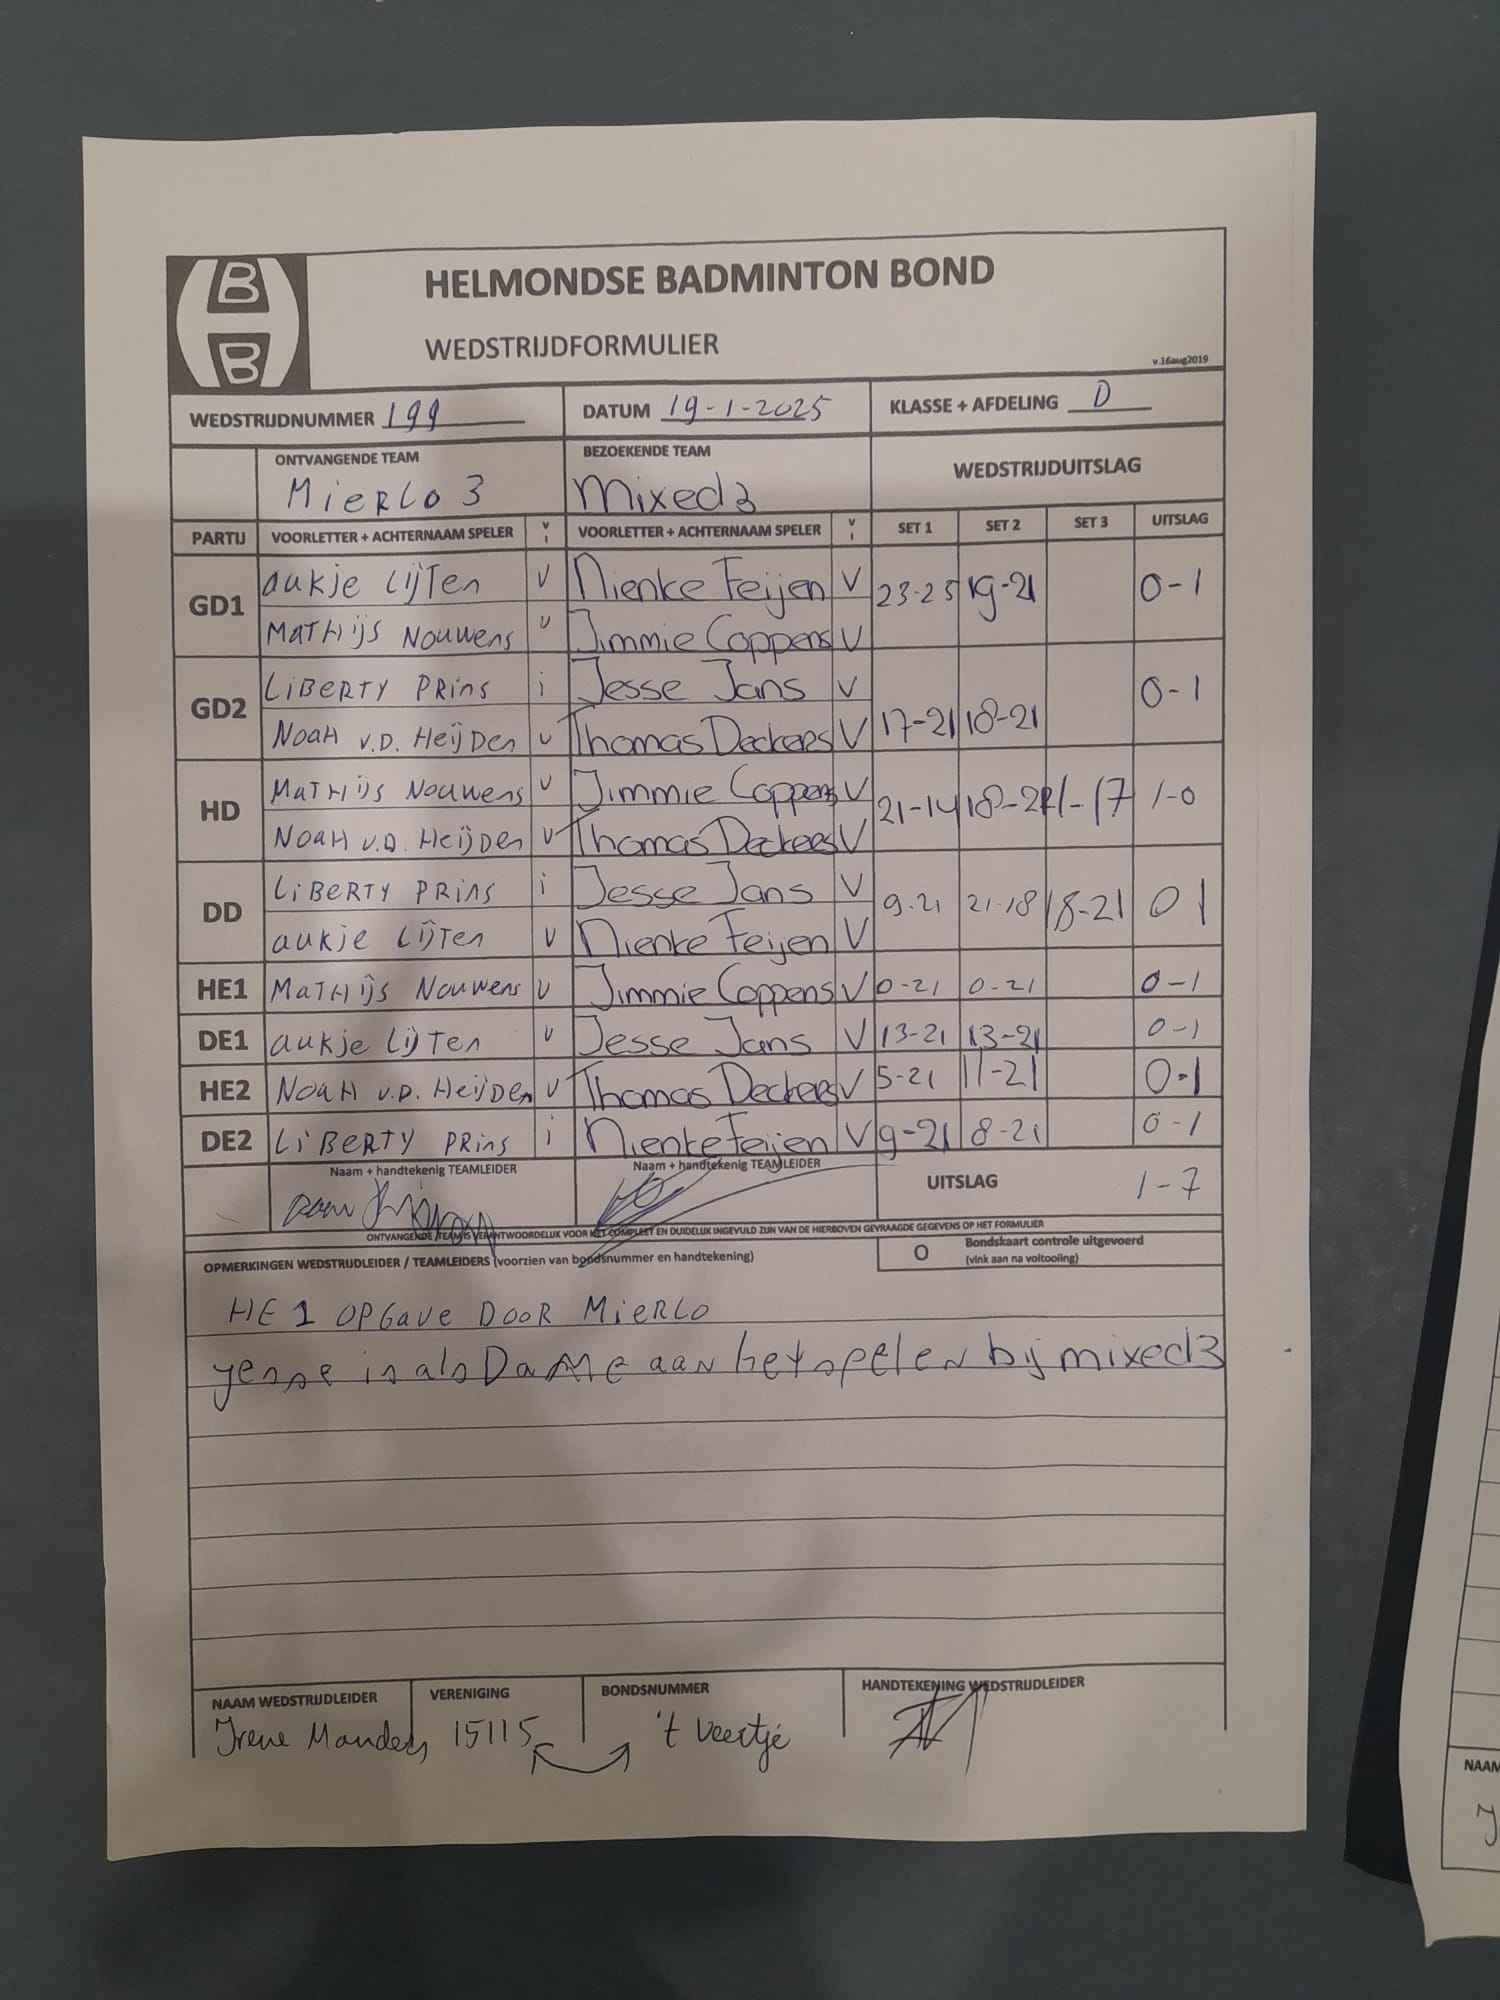 HELMONDSE BADMINTON BOND
WEDSTRIJDFORMULIER
v.16aug2019
WEDSTRIJDNUMMER 199 DATUM 19-1-2025 KLASSE + AFDELING D
ONTVANGENDE TEAM BEZOEKENDE TEAM WEDSTRIJDUITSLAG
MieRLO 3 Mixed3
PARTIJ VOORLETTER + ACHTERNAAM SPELER V I VOORLETTER + ACHTERNAAM SPELER V I SET 1 SET 2 SET 3 UITSLAG
GD1 aukje Lijten V Nienke Feijen V 23-25 19-21 0-1
MatHijs Nouwens V Jimmie Coppens V
GD2 LiBERTY PRins i Jesse Jans V 17-21 18-21 0-1
NoaH v.D. Heijden V Thomas Deckers V
HD MatHijs Nouwens V Jimmie Coppens V 21-14 18-21 21-17 1-0
NoaH v.D. Heijden V Thomas Deckers V
DD LiBERTY PRins i Jesse Jans V 9-21 21-18 18-21 0 1
aukje Lijten V Nienke Feijen V
HE1 MatHijs Nouwens V Jimmie Coppens V 0-21 0-21 0-1
DE1 aukje Lijten V Jesse Jans V 13-21 13-21 0-1
HE2 NoaH v.D. Heijden V Thomas Deckers V 5-21 11-21 0-1
DE2 LiBERTY PRins i Nienke Feijen V 9-21 8-21 0-1
Naam + handtekenig TEAMLEIDER Naam + handtekenig TEAMLEIDER UITSLAG 1-7
ONTVANGENDE TEAM IS VERANTWOORDELIJK VOOR HET COMPLEET EN DUIDELIJK INGEVULD ZIJN VAN DE HIERBOVEN GEVRAAGDE GEGEVENS OP HET FORMULIER
OPMERKINGEN WEDSTRIJDLEIDER / TEAMLEIDERS (voorzien van bondsnummer en handtekening) O Bondskaart controle uitgevoerd
(vink aan na voltooiing)
HE 1 OPGave DOOR MieRLO
yesse is als DaMe aan het spelen bij mixed3
NAAM WEDSTRIJDLEIDER VERENIGING BONDSNUMMER HANDTEKENING WEDSTRIJDLEIDER
Irene Manders 15115 't Veertje
NAAM